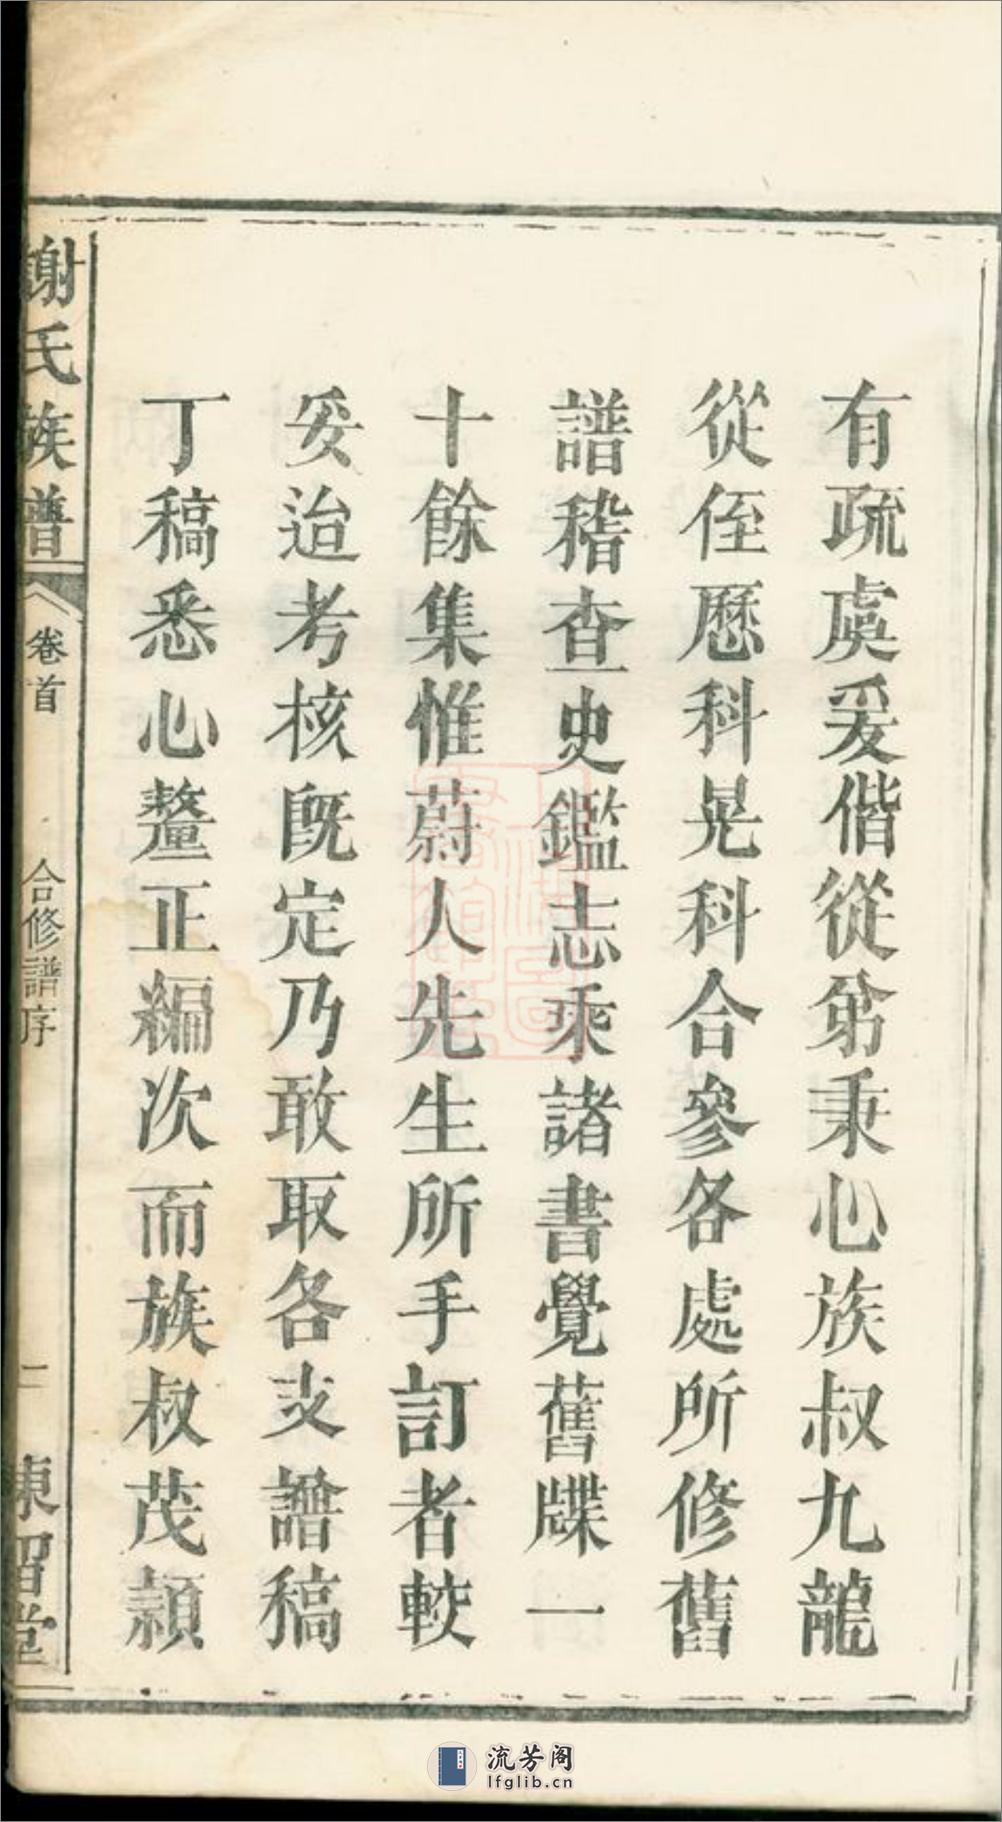 有疏虞爰偕從弟秉心族叔九龍
從侄厯科晃科合參各處所修舊
譜稽查史鑑志乘諸書覺舊牒一
十餘集惟蔚人先生所手訂者較
妥迨考核既定乃敢取各支譜稿
丁稿悉心釐正編次而族叔茂頴
謝氏族譜
卷首
合修譜序
二
東習堂
流芳阁
lfglib.cn